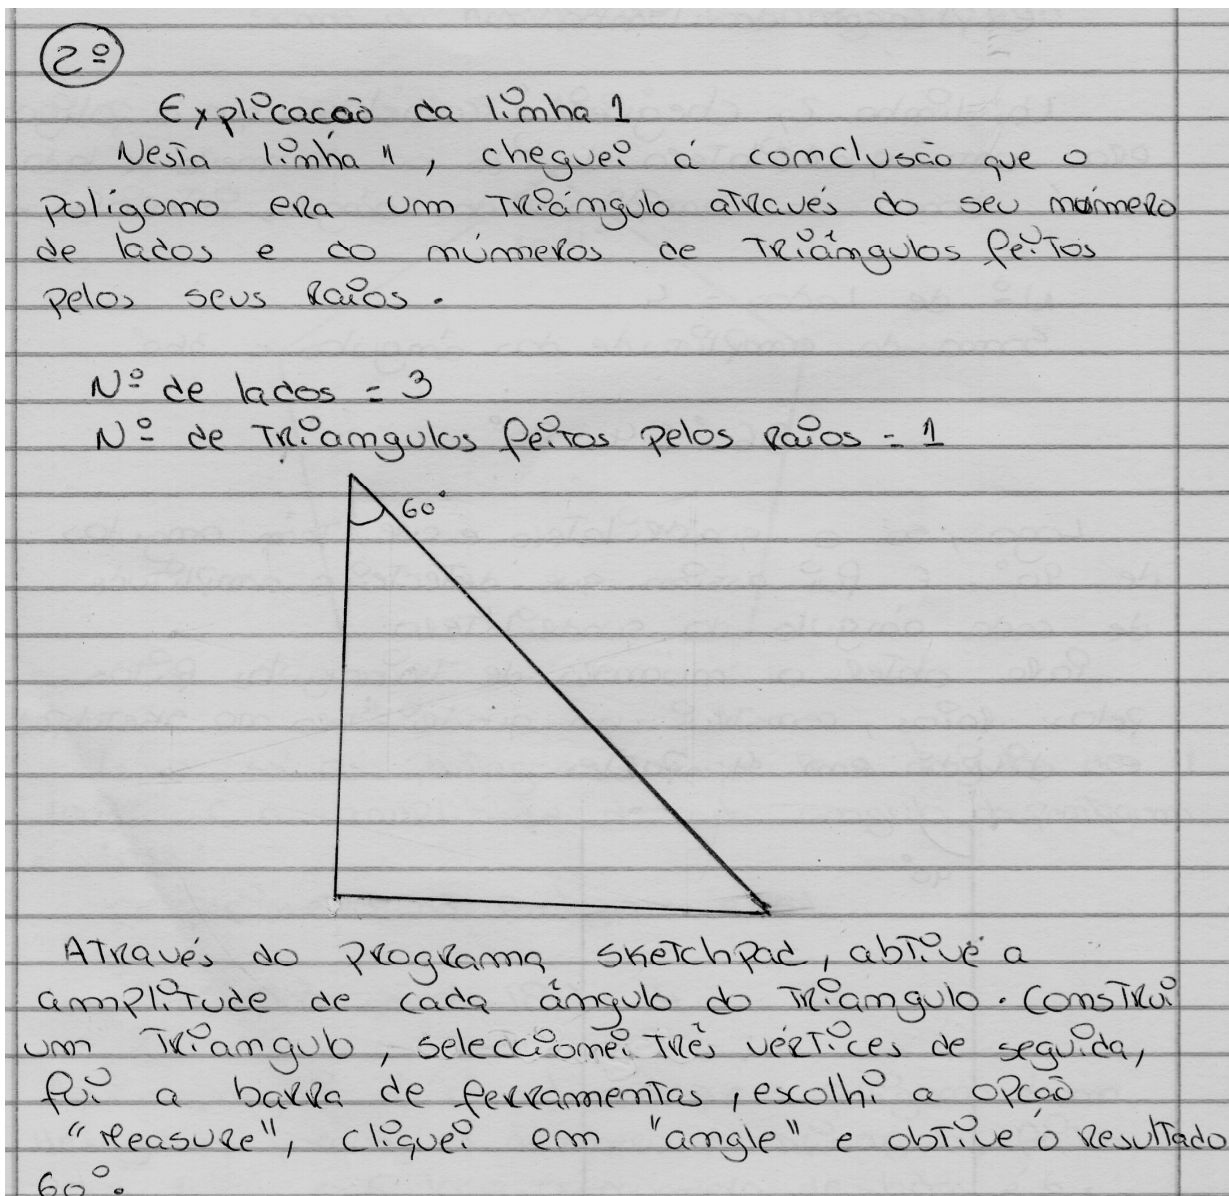 2º
Explicação da linha 1
Nesta linha ", cheguei á conclusão que o
polígono era um triángulo através do seu número
de lados e do números de triângulos feitos
pelos seus raios.
Nº de lados = 3
Nº de triangulos feitos pelos raios = 1
60°
Através do programa sketchpad, abtive a
amplitude de cada ângulo do triangulo. Construi
um triangulo, seleccionei três vértices de seguida,
fui a barra de ferramentas, escolhi a opção
"Measure", cliquei em "angle" e obtive o resultado
60°.